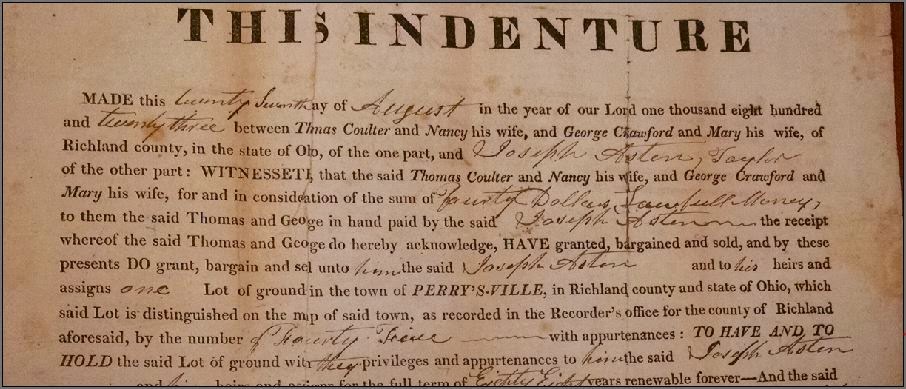 THIS INDENTURE
MADE this twenty Seventh ay of August in the year of our Lord one thousand eight hundred
and twenty three between Thmas Coulter and Nancy his wife, and George Crawford and Mary his wife, of
Richland county, in the state of Oho, of the one part, and Joseph Asten, Taylor
of the other part: WITNESSETH, that the said Thomas Coulter and Nancy his wife, and George Crawford and
Mary his wife, for and in consideration of the sum of fourty Dollars Lawfull Money,
to them the said Thomas and Geoge in hand paid by the said Joseph Asten the receipt
whereof the said Thomas and Geoge do hereby acknowledge, HAVE granted, bargained and sold, and by these
presents DO grant, bargain and sel unto him the said Joseph Asten and to his heirs and
assigns one Lot of ground in the town of PERRY'S-VILLE, in Richland county and state of Ohio, which
said Lot is distinguished on the map of said town, as recorded in the Recorder's office for the county of Richland
aforesaid, by the number Fourty with appurtenances: TO HAVE AND TO
HOLD the said Lot of ground with they privileges and appurtenances to him the said Joseph Asten
and his heirs and assigns for the full term of Eighty Eight years renewable forever—And the said